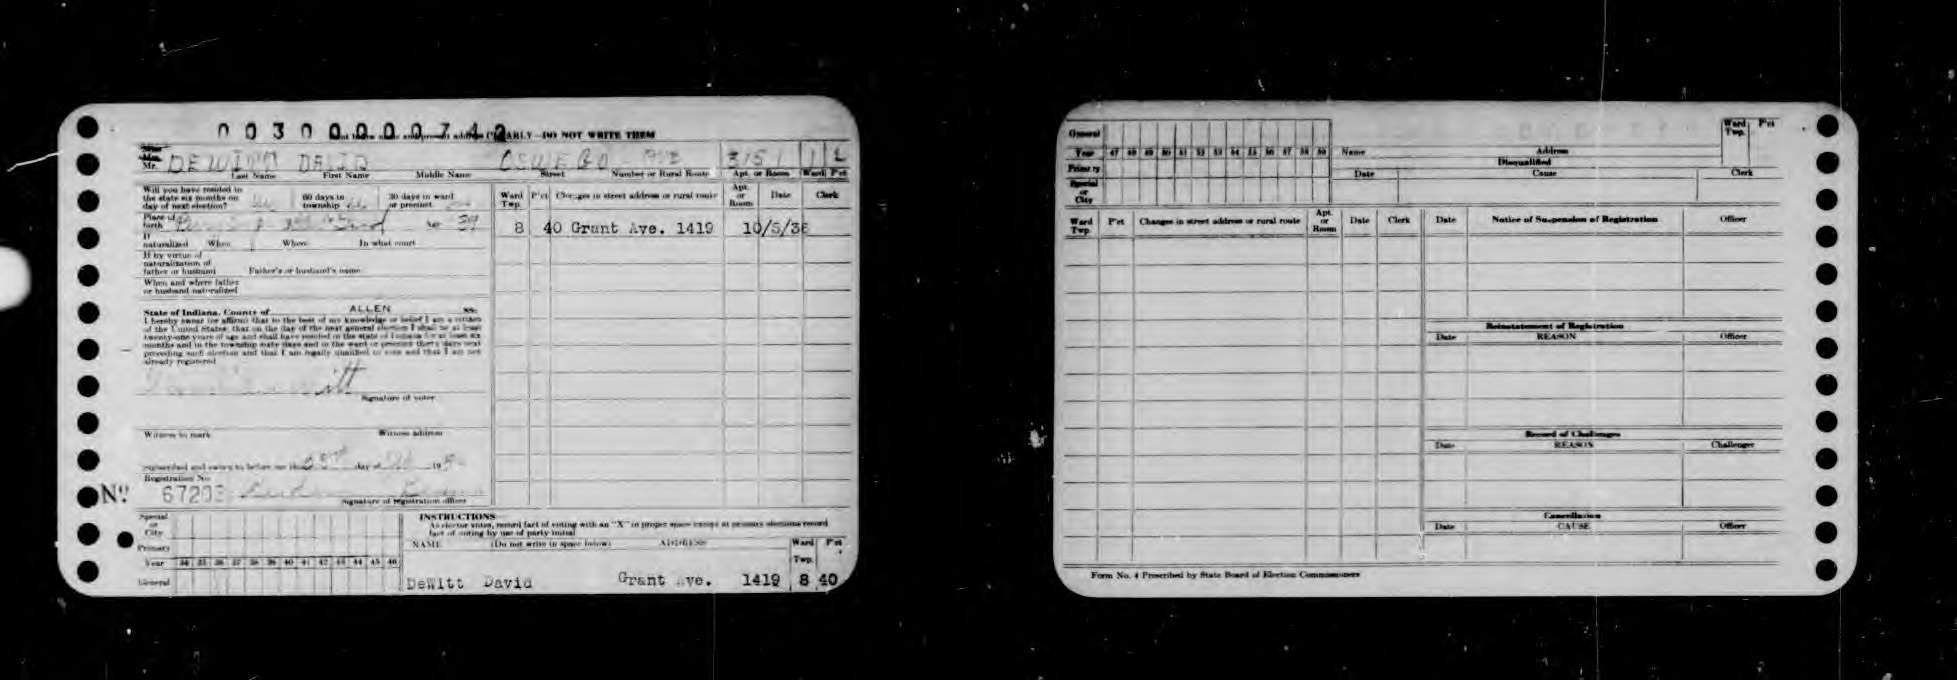 0030000074
CLEARLY—DO NOT WRITE THEM
Mr. DEWITT DAVID OSWEGO AVE 315 1 1
Last Name First Name Middle Name Street Number or Rural Route Apt. or Room Ward Pct
Will you have resided in the state six months on day of next election? 60 days in township 30 days in ward or precinct
Place of birth Ind Age 39
If naturalized When Where In what court
If by virtue of naturalization of father or husband Father's or husband's name
When and where father or husband naturalized
Ward Twp. P'ct Changes in street address or rural route Apt. or Room Date Clerk
8 40 Grant Ave. 1419 10/5/36
State of Indiana, County of ALLEN SS:
I hereby swear (or affirm) that to the best of my knowledge or belief I am a citizen
of the United States; that on the day of the next general election I shall be at least
twenty-one years of age and shall have resided in the state of Indiana for at least six
months and in the township sixty days and in the ward or precinct thirty days next
preceding such election and that I am legally qualified to vote and that I am not
already registered
David DeWitt
Signature of voter
Witness to mark Witness address
Subscribed and sworn to before me this day of 19
Registration No.
No. 67203
Signature of registration officer
Special or City
Primary
Year 34 35 36 37 38 39 40 41 42 43 44 45 46
General
INSTRUCTIONS
As elector votes, record fact of voting with an "X" in proper space except at primary elections record
fact of voting by use of party initial
NAME (Do not write in space below) ADDRESS Ward Twp. P'ct
DeWitt David Grant Ave. 1419 8 40
General
Year 47 48 49 50 51 52 53 54 55 56 57 58 59
Primary
Special or City
Name Address Ward Twp. P'ct
Disqualified
Date Cause Clerk
Ward Twp. P'ct Changes in street address or rural route Apt. or Room Date Clerk
Date Notice of Suspension of Registration Officer
Reinstatement of Registration
Date REASON Officer
Record of Challenges
Date REASON Challenger
Cancellation
Date CAUSE Officer
Form No. 4 Prescribed by State Board of Election Commissioners